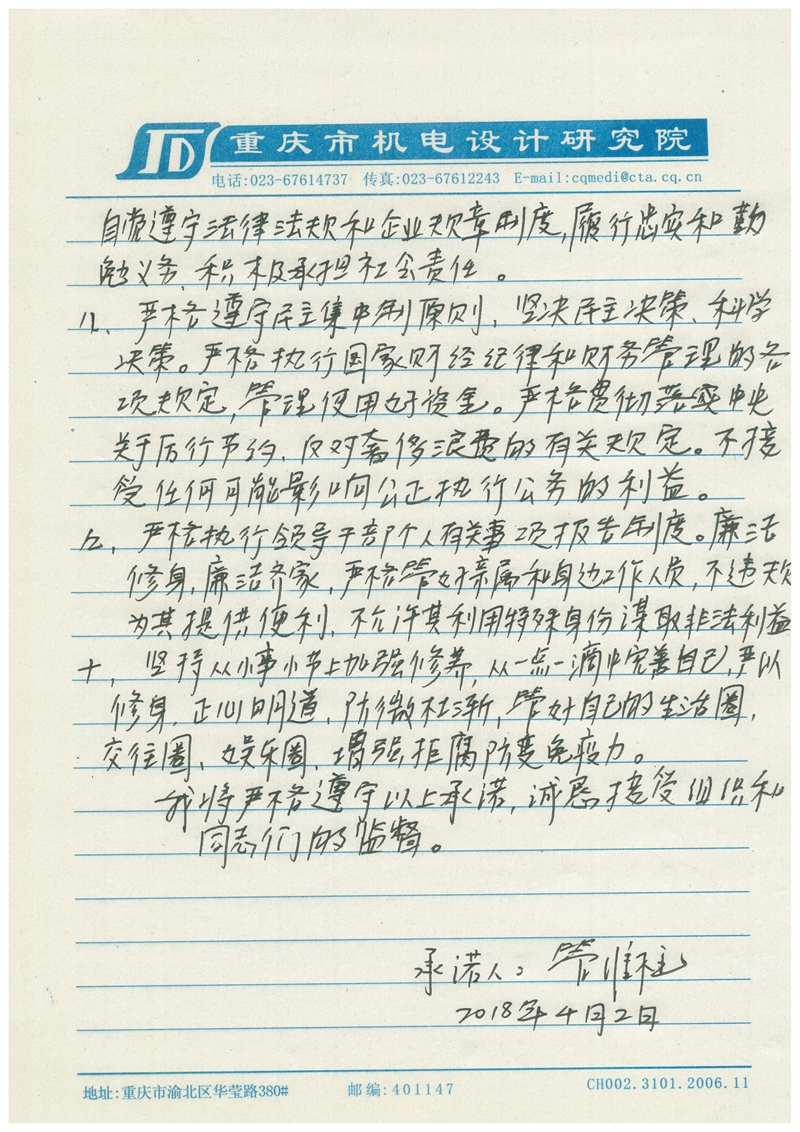 JD 重庆市机电设计研究院
电话:023-67614737 传真:023-67612243 E-mail:cqmedi@cta.cq.cn
自觉遵守法律法规和企业规章制度,履行忠实和勤
勉义务,积极承担社会责任。
八、严格遵守民主集中制原则,坚决民主决策、科学
决策。严格执行国家财经纪律和财务管理的各
项规定,管理使用好资金。严格贯彻落实中央
关于厉行节约,反对奢侈浪费的有关规定。不接
受任何可能影响公正执行公务的利益。
九、严格执行领导干部个人有关事项报告制度。廉洁
修身,廉洁齐家,严格管好亲属和身边工作人员,不违规
为其提供便利,不允许其利用特殊身份谋取非法利益
十、坚持从小事小节上加强修养,从一点一滴中完善自己,严以
修身,正心明道,防微杜渐,管好自己的生活圈,
交往圈、娱乐圈,增强拒腐防变免疫力。
我将严格遵守以上承诺,诚恳接受组织和
同志们的监督。
承诺人:管
2018年4月2日
地址:重庆市渝北区华莹路380# 邮编:401147 CH002.3101.2006.11